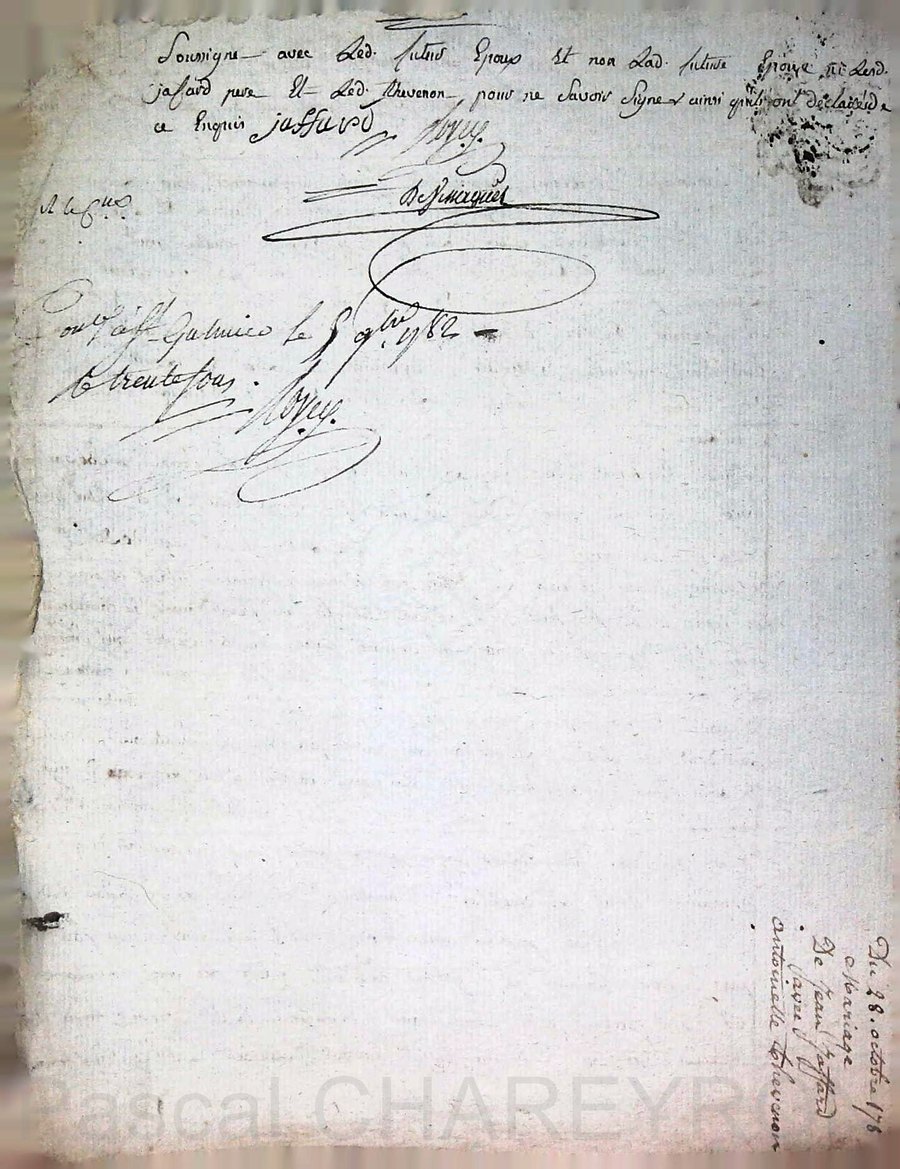 Soussigne avec Led. futur Epoux Et non Lad. future Epouse ni Lesd.
jaffard pere Et Led. thevenon pour ne Savoir Signer ainsi qu'ils ont declaré de
ce Enquis jaffard
Con^lé à S^t Galmier le 5 9^bre 1782
trente sous.
Du 28. octobre 178
Mariage
De Jean Jaffard
avec
antoinette thevenon
Pascal CHAREYRO